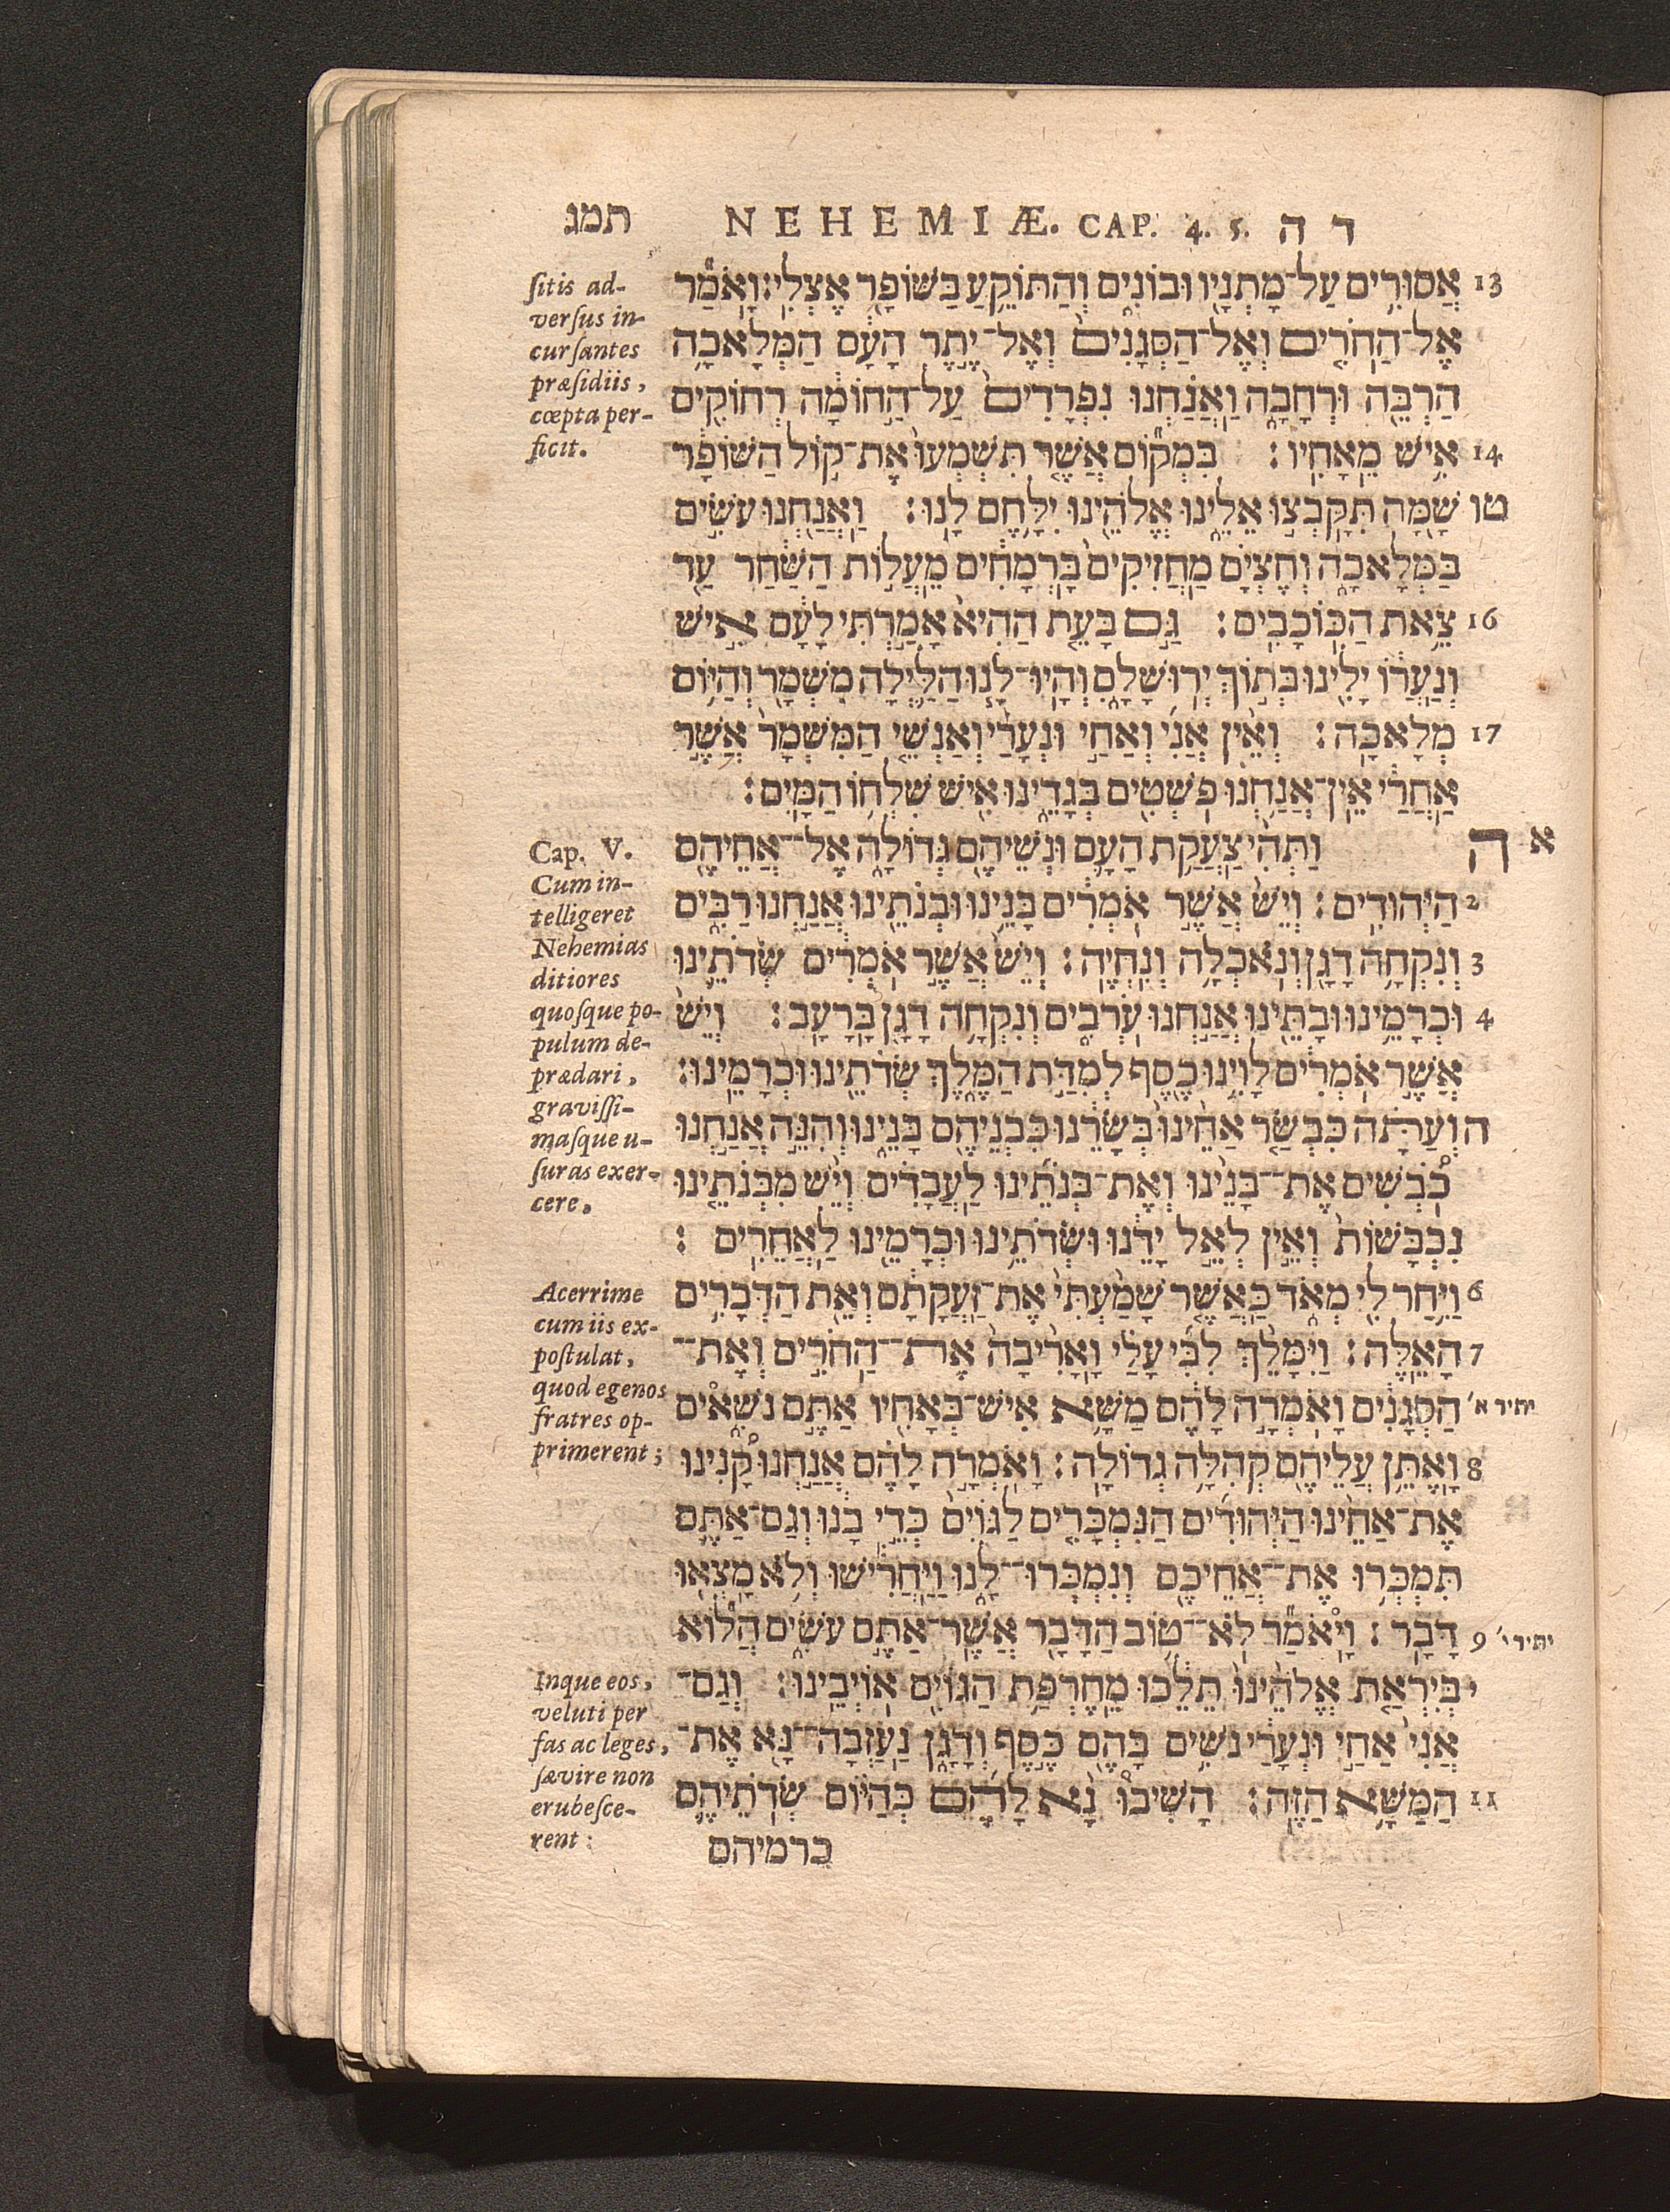 תמג NEHEMIÆ. CAP. 4. 5. ד ה
13 אֲסוּרִים עַל־מָתְנָיו וּבוֹנִים וְהַתּוֹקֵעַ בַּשּׁוֹפָר אֶצְלִי: וָאֹמַר
אֶל־הַחֹרִים וְאֶל־הַסְּגָנִים וְאֶל־יֶתֶר הָעָם הַמְּלָאכָה
הַרְבֵּה וּרְחָבָה וַאֲנַחְנוּ נִפְרָדִים עַל־הַחוֹמָה רְחוֹקִים
14 אִישׁ מֵאָחִיו: בִּמְקוֹם אֲשֶׁר תִּשְׁמְעוּ אֶת־קוֹל הַשּׁוֹפָר
טו שָׁמָּה תִּקָּבְצוּ אֵלֵינוּ אֱלֹהֵינוּ יִלָּחֶם לָנוּ: וַאֲנַחְנוּ עֹשִׂים
בַּמְּלָאכָה וְחֶצְיָם מַחֲזִיקִים בָּרְמָחִים מֵעֲלוֹת הַשַּׁחַר עַד
16 צֵאת הַכּוֹכָבִים: גַּם בָּעֵת הַהִיא אָמַרְתִּי לָעָם אִישׁ
וְנַעֲרוֹ יָלִינוּ בְּתוֹךְ יְרוּשָׁלָםִ וְהָיוּ־לָנוּ הַלַּיְלָה מִשְׁמָר וְהַיּוֹם
17 מְלָאכָה: וְאֵין אֲנִי וְאַחַי וּנְעָרַי וְאַנְשֵׁי הַמִּשְׁמָר אֲשֶׁר
אַחֲרַי אֵין־אֲנַחְנוּ פֹשְׁטִים בְּגָדֵינוּ אִישׁ שִׁלְחוֹ הַמָּיִם:
א ה וַתְּהִי צַעֲקַת הָעָם וּנְשֵׁיהֶם גְּדוֹלָה אֶל־אֲחֵיהֶם
2 הַיְּהוּדִים: וְיֵשׁ אֲשֶׁר אֹמְרִים בָּנֵינוּ וּבְנֹתֵינוּ אֲנַחְנוּ רַבִּים
3 וְנִקְחָה דָגָן וְנֹאכְלָה וְנִחְיֶה: וְיֵשׁ אֲשֶׁר אֹמְרִים שְׂדֹתֵינוּ
4 וּכְרָמֵינוּ וּבָתֵּינוּ אֲנַחְנוּ עֹרְבִים וְנִקְחָה דָגָן בָּרָעָב: וְיֵשׁ
אֲשֶׁר אֹמְרִים לָוִינוּ כֶסֶף לְמִדַּת הַמֶּלֶךְ שְׂדֹתֵינוּ וּכְרָמֵינוּ:
ה וְעַתָּה כִּבְשַׂר אַחֵינוּ בְּשָׂרֵנוּ כִּבְנֵיהֶם בָּנֵינוּ וְהִנֵּה אֲנַחְנוּ
כֹבְשִׁים אֶת־בָּנֵינוּ וְאֶת־בְּנֹתֵינוּ לַעֲבָדִים וְיֵשׁ מִבְּנֹתֵינוּ
נִכְבָּשׁוֹת וְאֵין לְאֵל יָדֵנוּ וּשְׂדֹתֵינוּ וּכְרָמֵינוּ לַאֲחֵרִים:
6 וַיִּחַר לִי מְאֹד כַּאֲשֶׁר שָׁמַעְתִּי אֶת־זַעֲקָתָם וְאֵת הַדְּבָרִים
7 הָאֵלֶּה: וַיִּמָּלֵךְ לִבִּי עָלַי וָאָרִיבָה אֶת־הַחֹרִים וְאֶת־
יתיר א׳ הַסְּגָנִים וָאֹמְרָה לָהֶם מַשָּׁא אִישׁ־בְּאָחִיו אַתֶּם נֹשְׁאִים
8 וָאֶתֵּן עֲלֵיהֶם קְהִלָּה גְדוֹלָה: וָאֹמְרָה לָהֶם אֲנַחְנוּ קָנִינוּ
אֶת־אַחֵינוּ הַיְּהוּדִים הַנִּמְכָּרִים לַגּוֹיִם כְּדֵי בָנוּ וְגַם־אַתֶּם
תִּמְכְּרוּ אֶת־אֲחֵיכֶם וְנִמְכְּרוּ־לָנוּ וַיַּחֲרִישׁוּ וְלֹא מָצְאוּ
9 יתיר י׳ דָּבָר: וָיֹאמַר לֹא־טוֹב הַדָּבָר אֲשֶׁר־אַתֶּם עֹשִׂים הֲלוֹא
י בְּיִרְאַת אֱלֹהֵינוּ תֵּלֵכוּ מֵחֶרְפַּת הַגּוֹיִם אוֹיְבֵינוּ: וְגַם־
אֲנִי אַחַי וּנְעָרַי נֹשִׁים בָּהֶם כֶּסֶף וְדָגָן נַעַזְבָה־נָּא אֶת־
11 הַמַּשָּׁא הַזֶּה: הָשִׁיבוּ נָא לָהֶם כְּהַיּוֹם שְׂדֹתֵיהֶם
כרמיהם
sitis ad-
versus in-
cursantes
præsidiis,
cœpta per-
ficit.
Cap. V.
Cum in-
telligeret
Nehemias
ditiores
quosque po-
pulum de-
prædari,
gravissi-
masque u-
suras exer-
cere.
Acerrime
cum iis ex-
postulat,
quod egenos
fratres op-
primerent;
Inque eos,
veluti per
fas ac leges,
sævire non
erubesce-
rent: